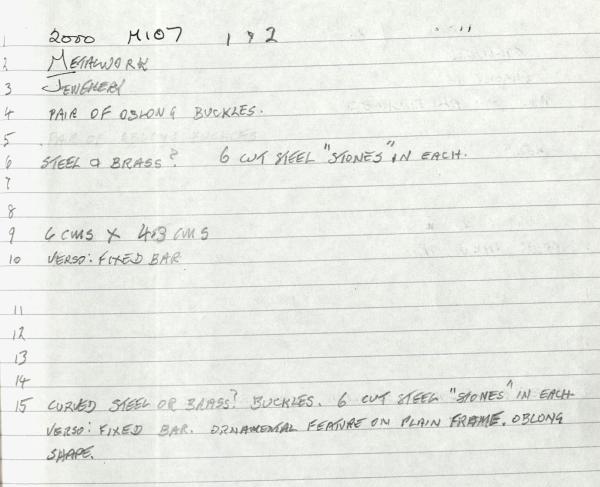 1 2000 M107 1 & 2
2 METALWORK
3 JEWELLERY
4 PAIR OF OBLONG BUCKLES.
5 PAIR OF OBLONG BUCKLES
6 STEEL & BRASS? 6 CUT STEEL "STONES" IN EACH.
7
8
9 6 CMS X 4.3 CMS
10 VERSO: FIXED BAR
11
12
13
14
15 CURVED STEEL OR BRASS? BUCKLES. 6 CUT STEEL "STONES" IN EACH
VERSO: FIXED BAR. ORNAMENTAL FEATURE ON PLAIN FRAME. OBLONG
SHAPE.